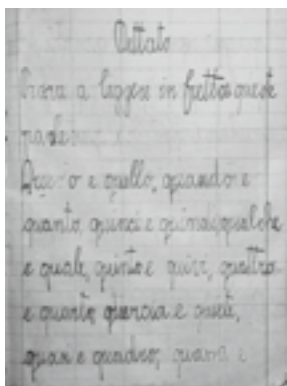 Dettato
Prova a leggere in fretta queste
parole
e quello, quando e
quanto, quinci e quindi, qualche
e quale, quinto e quattro
e quanto, quercia e
quasi e quadro, e